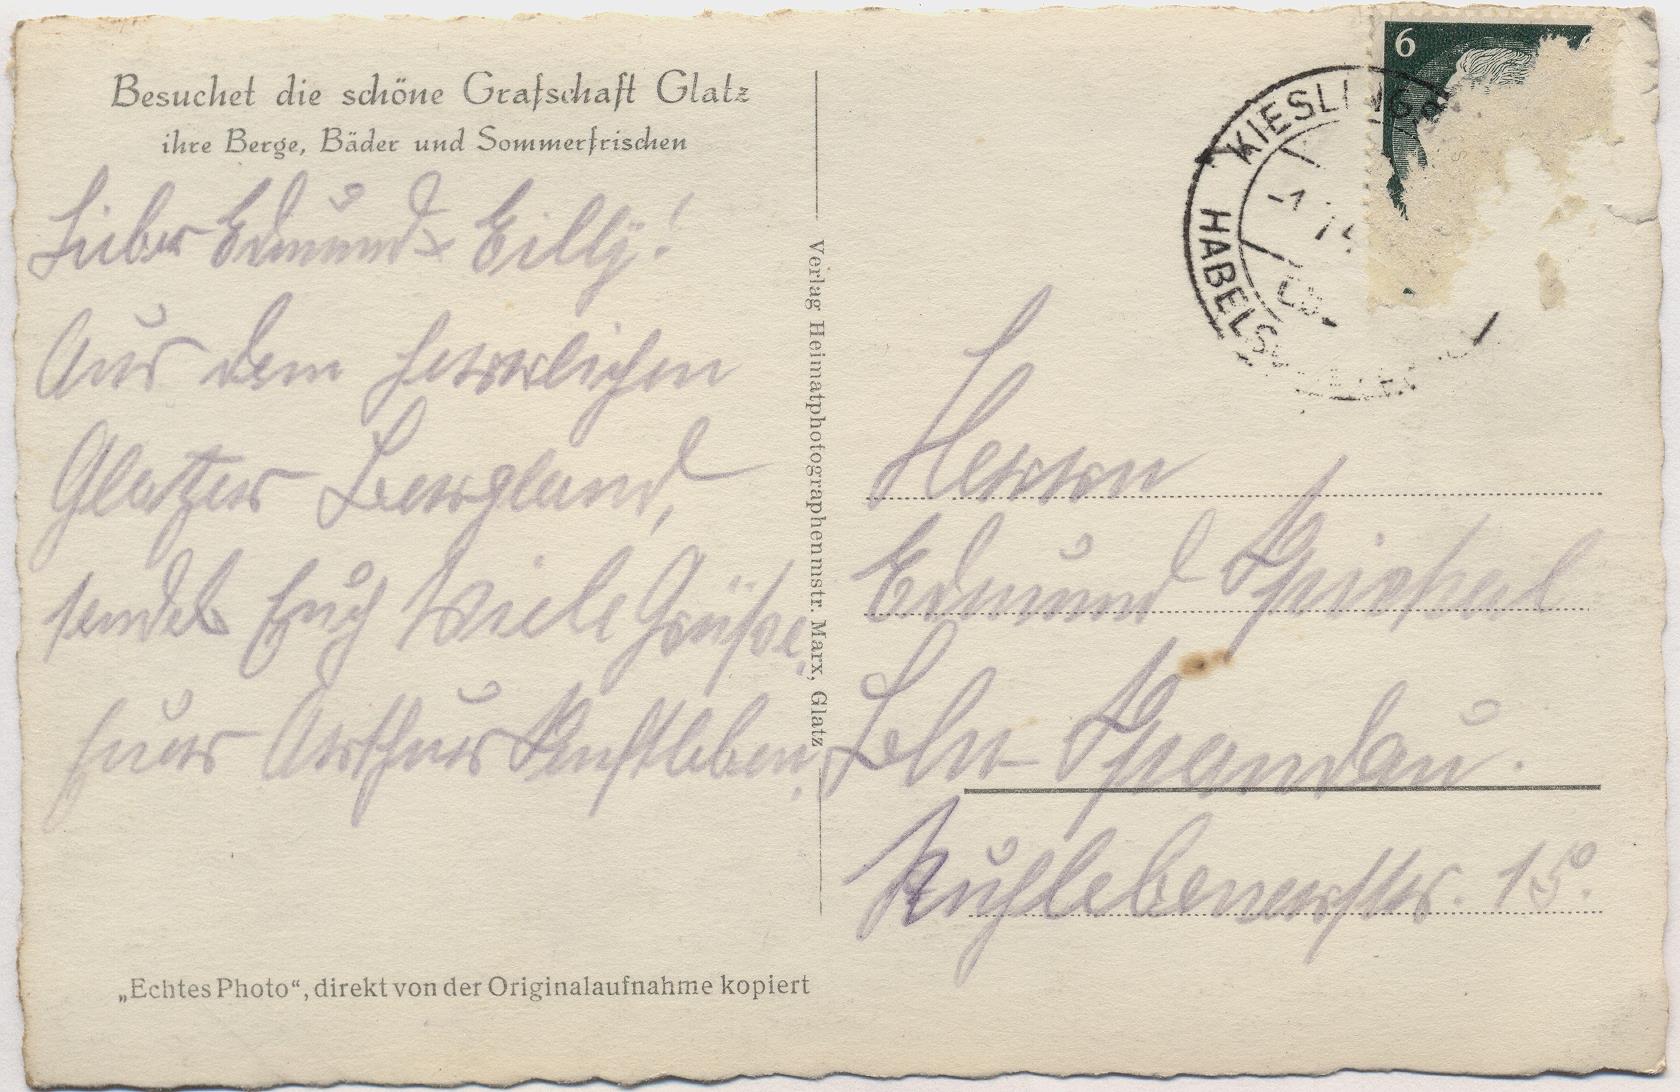 Besuchet die schöne Grafschaft Glatz
ihre Berge, Bäder und Sommerfrischen
Lieber Edmund & Cilly!
Aus dem herrlichen
Glatzer Bergland,
sendet Euch Viele Grüße.
Euer Arthur
Verlag Heimatphotographenmstr. Marx, Glatz
6
KIESLING
HABELS
Herrn
Edmund
Bln-Spandau.
Ruhlebenerstr. 15.
„Echtes Photo“, direkt von der Originalaufnahme kopiert